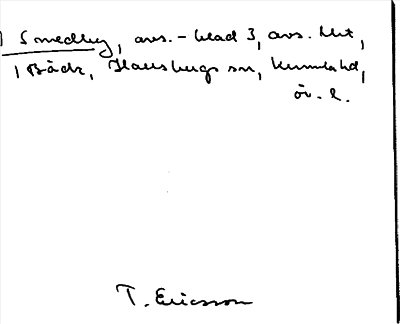 1 Smedby, avs. - blad 3, avs. Mit,
1 Bäck, Hansbergs sn, Kumla hd,
ör. l.
T. Ericsson